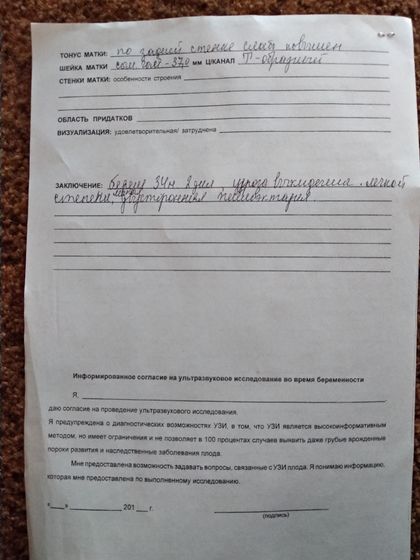 ТОНУС МАТКИ: по задней стенке слабо повышен
ШЕЙКА МАТКИ 37,0 мм Ц/КАНАЛ Т-образный
СТЕНКИ МАТКИ: особенности строения
ОБЛАСТЬ ПРИДАТКОВ
ВИЗУАЛИЗАЦИЯ: удовлетворительная/ затруднена
ЗАКЛЮЧЕНИЕ: 34н. 2дня, угроза выкидыша. легкой
степени, двусторонняя пиелоэктазия.
Информированное согласие на ультразвуковое исследование во время беременности
Я,
даю согласие на проведение ультразвукового исследования.
Я предупреждена о диагностических возможностях УЗИ, в том, что УЗИ является высокоинформативным
методом, но имеет ограничения и не позволяет в 100 процентах случаев выявить даже грубые врожденные
пороки развития и наследственные заболевания плода.
Мне предоставлена возможность задавать вопросы, связанные с УЗИ плода. Я понимаю информацию,
которая мне предоставлена по выполненному исследованию.
«___»________ 201___ г.
(подпись)